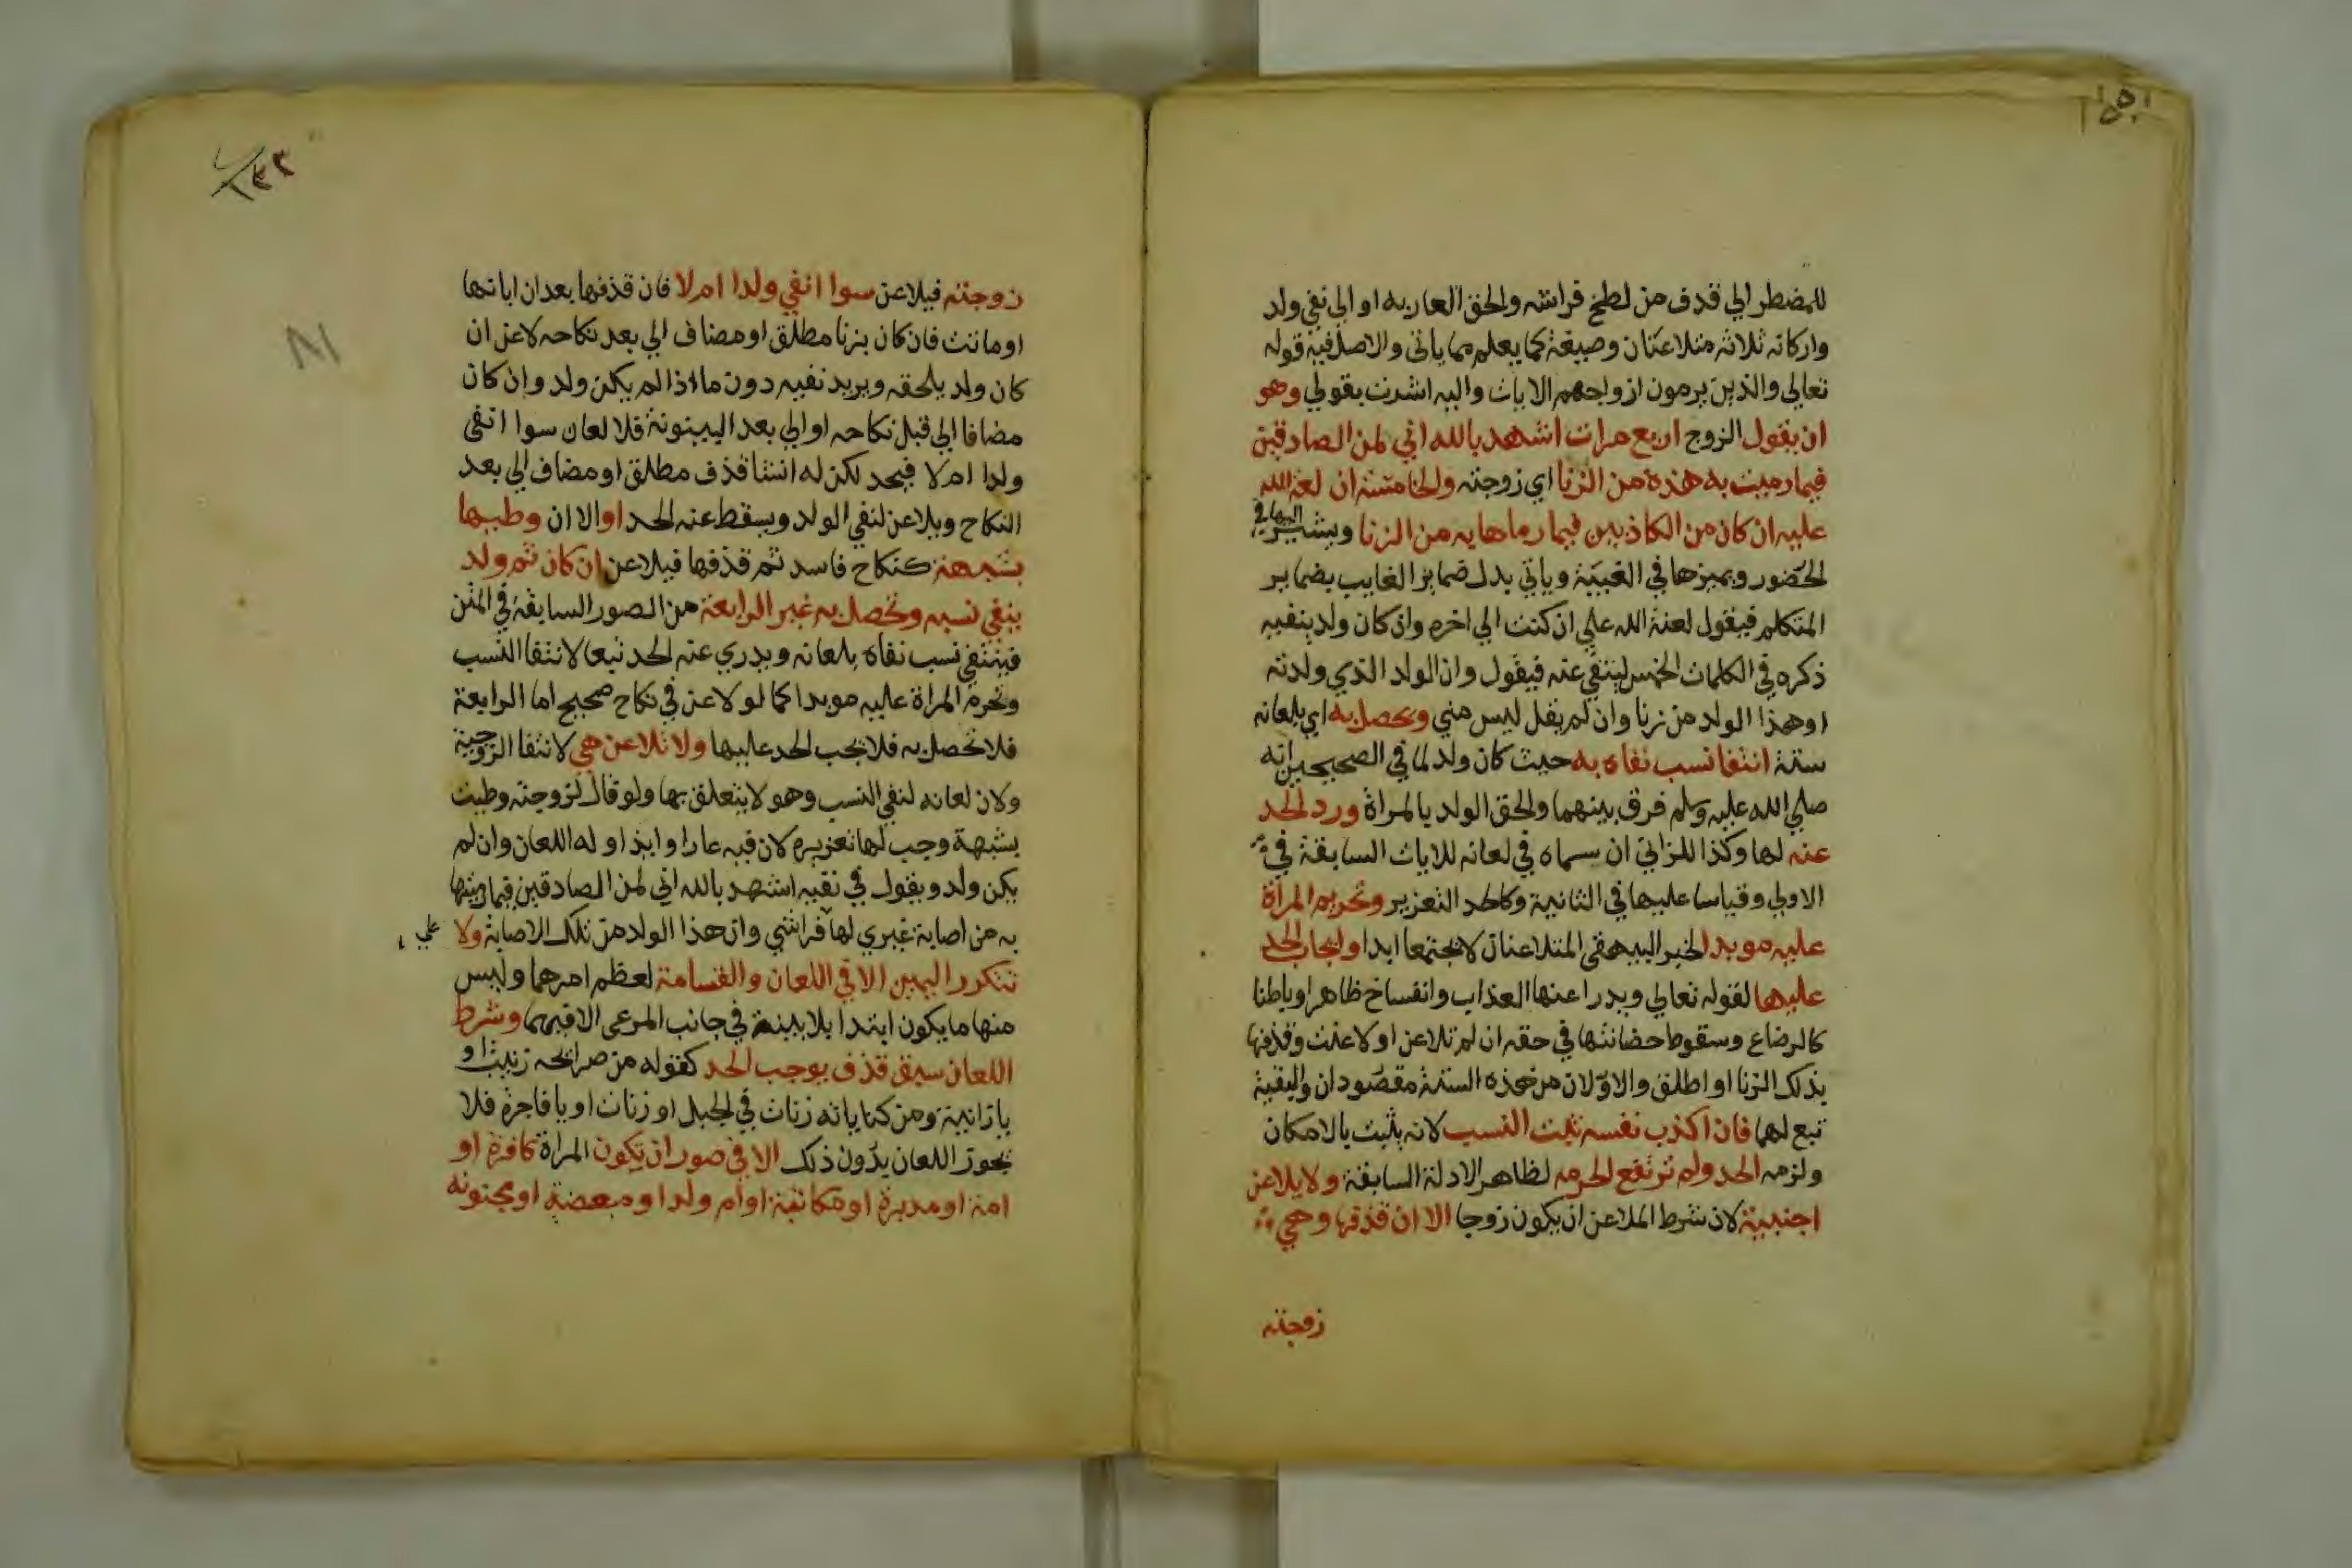 للمضطر الي قذف من لطخ فراشه والحق العار به او الي نفي ولد
واركانه ثلاثة متلاعنان وصيغة كما يعلم مما ياتي والاصل فيه قوله
تعالي والذين يرمون ازواجهم الايات واليه اشرت بقولي وهو
ان يقول الزوج اربع مرات اشهد بالله اني لمن الصادقين
فيما رميت به هذه من الزنا اي زوجته والخامسة ان لعنة الله
عليه ان كان من الكاذبين فيما رماها به من الزنا ويشير اليها في
الحضور ويميزها في الغيبة وياتي بدل ضماير الغايب بضماير
المتكلم فيقول لعنة الله علي ان كنت الي اخره وان كان ولد ينفيه
ذكره في الكلمات الخمس لينتفي عنه فيقول وان الولد الذي ولدته
او هذا الولد من زنا وان لم يقل ليس مني وتحصل به اي بلعانه
ستة انتفا نسب نفاه به حيث كان ولد لما في الصحيحين انه
صلي الله عليه وسلم فرق بينهما والحق الولد بالمراة ورد الحد
عنه لها وكذا للزاني ان سماه في لعانه للايات السابقة في
الاولي وقياسا عليها في الثانية وكالحد التعزير وتحريم المراة
عليه موبدا لخبر البيهقي المتلاعنان لا يجتمعا ابدا وايجاب الحد
عليها لقوله تعالي ويدرا عنها العذاب وانفساخ ظاهرا وباطنا
كالرضاع وسقوط حضانتها في حقه ان لم تلاعن او لاعنت وقذفها
بذلك الزنا او اطلق والاولان من هذه الستة مقصودان والبقية
تبع لهما فان اكذب نفسه ثبت النسب لانه يثبت بالامكان
ولزمه الحد ولم ترتفع الحرمه لظاهر الادلة السابقة ولا يلاعن
اجنبية لان شرط الملاعن ان يكون زوجا الا ان قذفها وهي
زوجته
زوجته فيلاعن سوا انفي ولدا ام لا فان قذفها بعد ان ابانها
او ماتت فان كان بزنا مطلق او مضاف الي بعد نكاحه لاعن ان
كان ولد يلحقه ويريد نفيه دون ما اذا لم يكن ولد وان كان
مضافا الي قبل نكاحه او الي بعد البينونة فلا لعان سوا انفي
ولدا ام لا فيحد لكن له انشا قذف مطلق او مضاف الي بعد
النكاح ويلاعن لنفي الولد ويسقط عنه الحد او الا ان وطيها
بشبهة كنكاح فاسد ثم قذفها فيلاعن ان كان ثم ولد
ينفي نسبه وتحصل به غير الرابعة من الصور السابقة في المتن
فينتفي نسب نفاه بلعانه ويدري عنه الحد تبعا لانتفا النسب
وتحرم المراة عليه موبدا كما لو لاعن في نكاح صحيح اما الرابعة
فلا تحصل به فلا يجب الحد عليها ولا تلاعن هي لانتفا الزوجية
ولان لعانه لنفي النسب وهو لا يتعلق بها ولو قال لزوجته وطيت
بشبهة وجب لها تعزيره لان فيه عارا وايذا وله اللعان وان لم
يكن ولد ويقول في نفيه اشهد بالله اني لمن الصادقين فيما رميتها
به من اصابة غيري لها فراشي وان هذا الولد من تلك الاصابة ولا
علي
تتكرر اليمين الا في اللعان والقسامة لعظم امرهما وليس
منها ما يكون ابتدا بلا بينة في جانب المدعي الا فيهما وشرط
اللعان سبق قذف يوجب الحد كقوله من صرايحه زنيت او
يا زانية ومن كناياته زنات في الجبل او زنات او يا فاجرة فلا
يجوز اللعان بدون ذلك الا في صور ان تكون المراة كافرة او
امة او مدبرة او مكاتبة او ام ولد او مبعضة او مجنونه